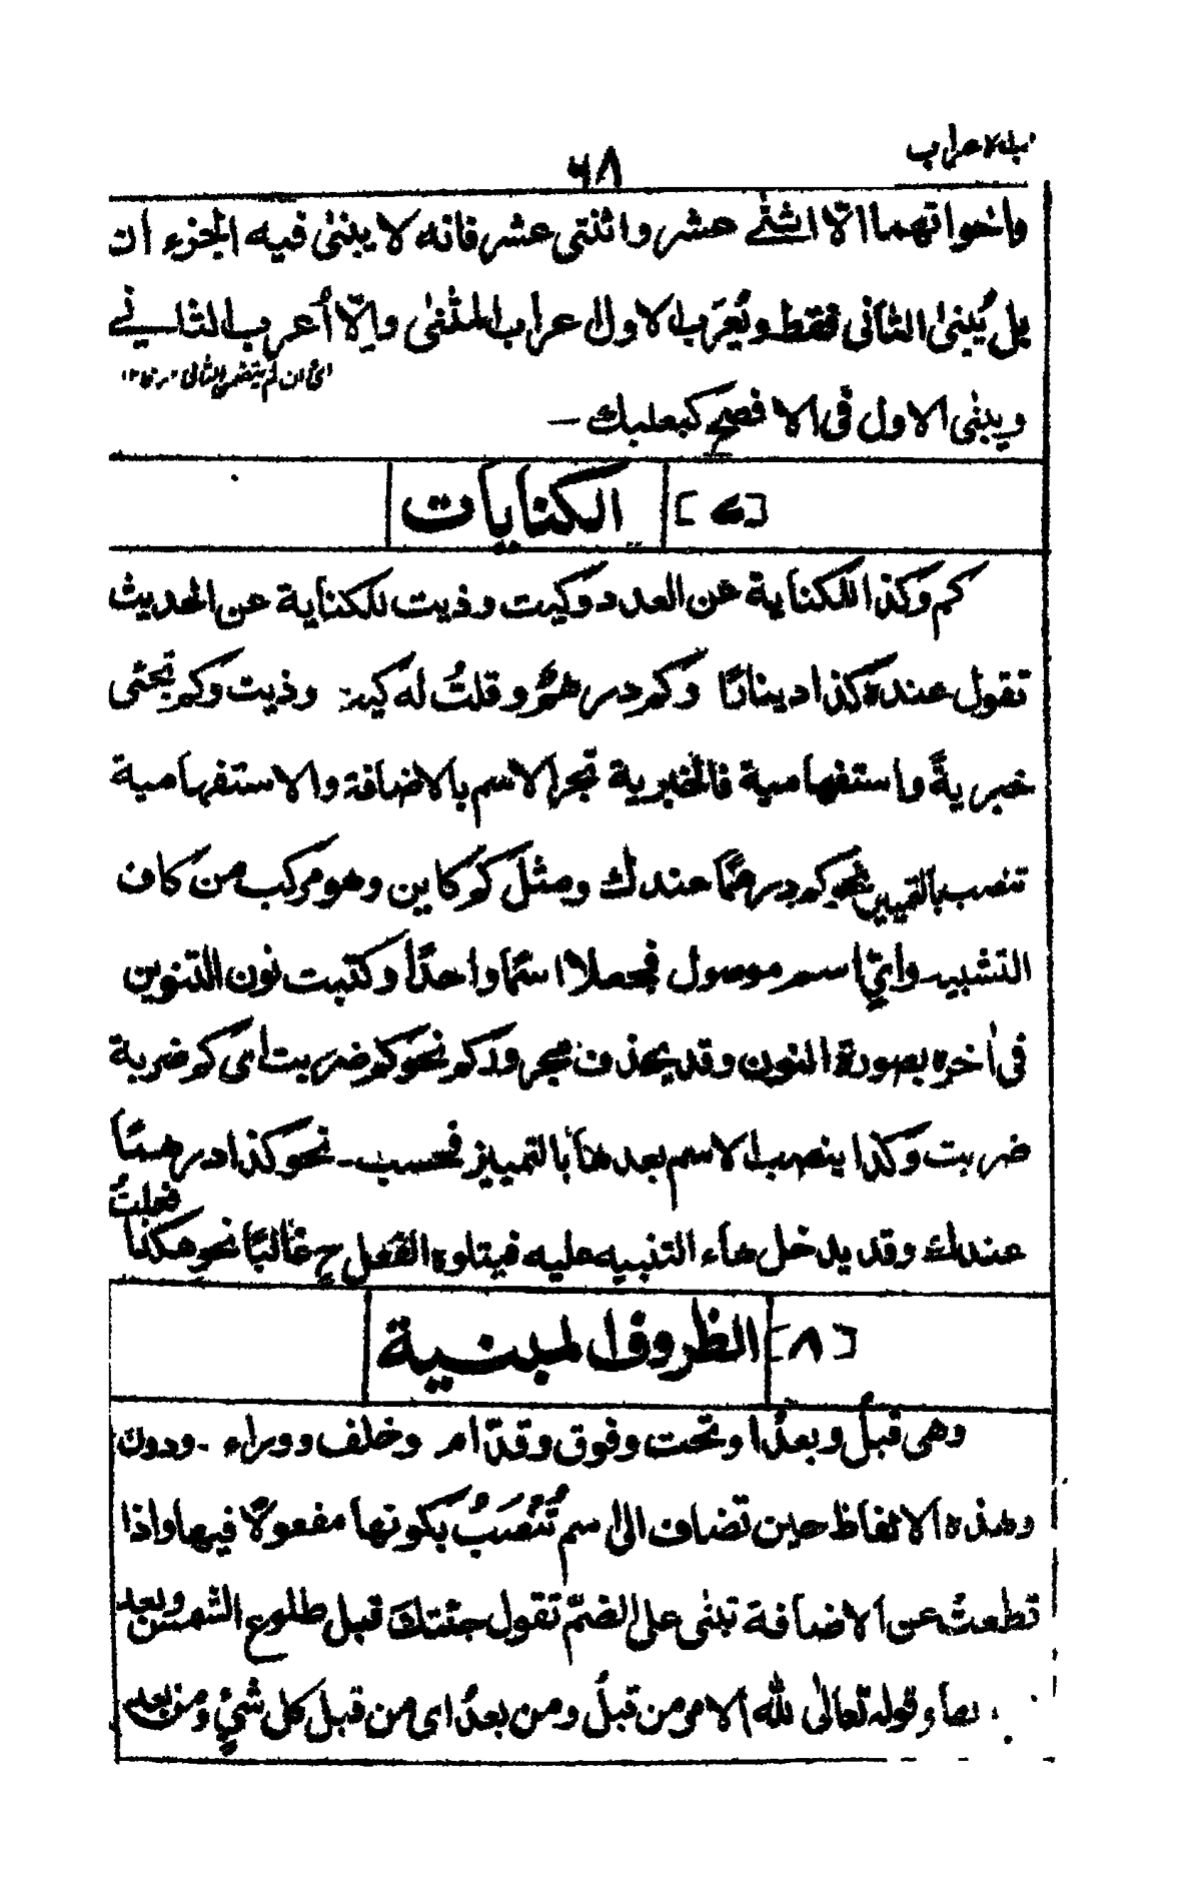 ٦٨
واخواتهما الّا اثنَي عشر واثنتي عشر فانه لا يبنىٰ فيه الجزءان
بل يُبنىٰ الثانى فقط ويُعرَب الاول اعراب المثنىٰ وإلّا أُعرب الثاني
اى ان لم يتضمن الثانى
ويبنٰى الاول فى الافصح كبعلبك —
[٧] الكنايات
كم وكذا للكناية عن العدد وكيت وذيت للكناية عن الحديث
تقول عنده كذا دينارًا وكم درهمٍ وقلتُ له كيت وذيت وكم تجئى
خبريةً واستفهامية فالخبرية تجر الاسم بالاضافة والاستفهامية
تنصب بالتمييز نحو كم درهمًا عندك ومثل كم كاين وهو مركب من كاف
التشبيه وايٍّ اسم موصول فجعلا اسمًا واحدًا وكتبت نون التنوين
فى اٰخره بصورة النون وقد يحذف مجرور كم نحو كم ضربت اى كم ضربة
ضربت وكذا ينصب الاسم بعدها بالتمييز فحسب - نحو كذا درهمًا
عندك وقد يدخل هاء التنبيه عليه فيتلوه الفعل ح غالبًا نحو هكذا فعلتُ
[٨] الظروف المبنية
وهى قبلُ وبعدُ وتحت وفوق وقدّام وخلف ووراء - ودون
وهذه الالفاظ حين تضاف الى اسم تُنصَبُ بكونها مفعولًا فيها واذا
قطعتْ عن الاضافة تبنٰى على الضمّ تقول جئتك قبل طلوع الشمس وبعد
وقوله تعالٰى لله الامر من قبلُ ومن بعدُ اى من قبل كل شيٍ ومن بعده